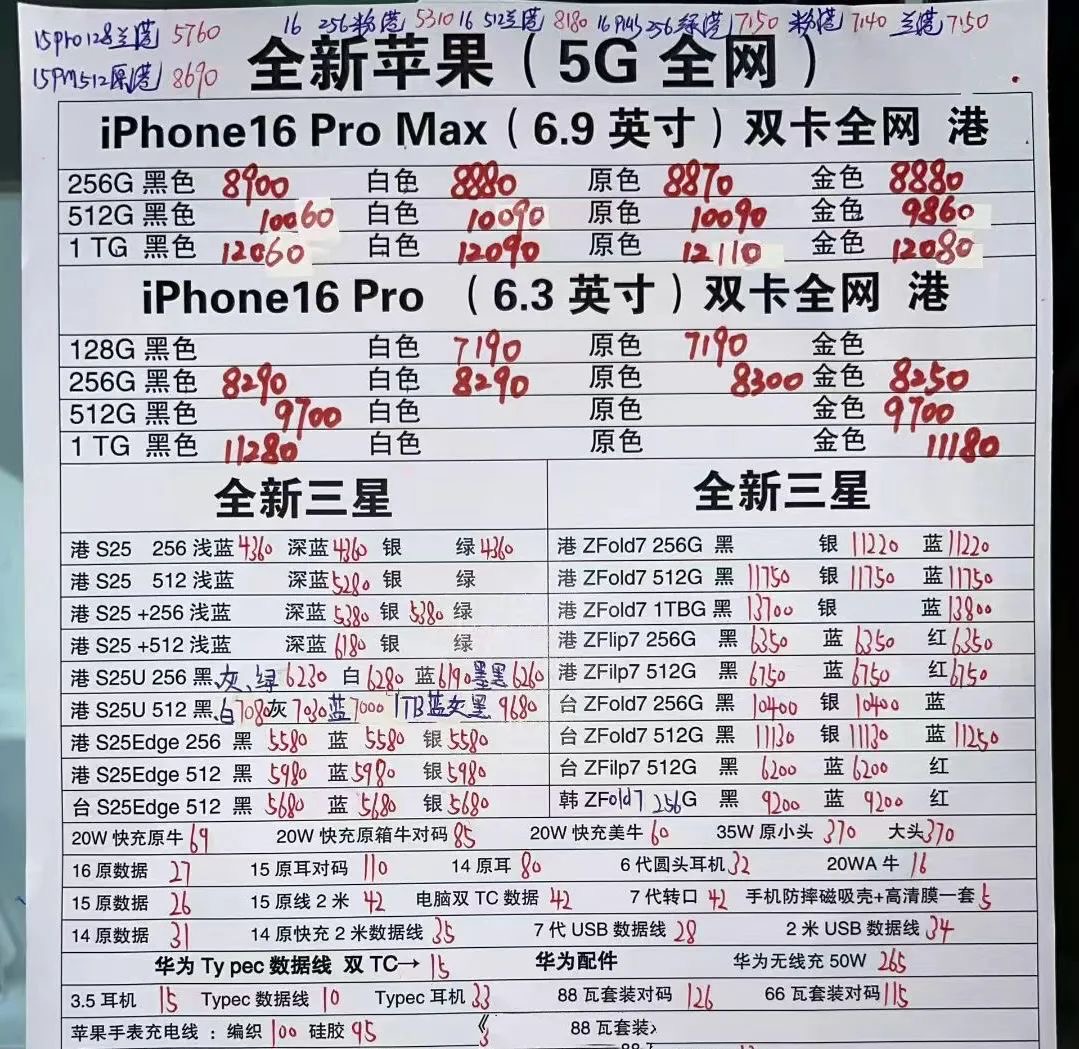 15Pro128兰港 5760 16 256粉港 5310 16 512兰港 8180 16Plus256绿港 7150 粉港 7140 兰港 7150
15PM512原港 8690
全新苹果（5G 全网）
iPhone16 Pro Max（6.9 英寸）双卡全网 港
256G 黑色 8900 白色 8880 原色 8870 金色 8880
512G 黑色 10060 白色 10090 原色 10090 金色 9860
1 TG 黑色 12060 白色 12090 原色 12110 金色 12080
iPhone16 Pro （6.3 英寸）双卡全网 港
128G 黑色 白色 7190 原色 7190 金色
256G 黑色 8290 白色 8290 原色 8300 金色 8250
512G 黑色 9700 白色 原色 金色 9700
1 TG 黑色 11280 白色 原色 金色 11180
全新三星
港 S25 256 浅蓝 4360 深蓝 4360 银 绿 4360
港 S25 512 浅蓝 深蓝 5280 银 绿
港 S25 +256 浅蓝 深蓝 5380 银 5380 绿
港 S25 +512 浅蓝 深蓝 6180 银 绿
港 S25U 256 黑、灰、绿 6230 白 6280 蓝 6190 墨黑 6260
港 S25U 512 黑.白 7080 灰 7030 蓝 7000 1TB蓝灰墨 9680
港 S25Edge 256 黑 5580 蓝 5580 银 5580
港 S25Edge 512 黑 5980 蓝 5980 银 5980
台 S25Edge 512 黑 5680 蓝 5680 银 5680
全新三星
港 ZFold7 256G 黑 银 11220 蓝 11220
港 ZFold7 512G 黑 11750 银 11750 蓝 11750
港 ZFold7 1TBG 黑 13700 银 蓝 13800
港 ZFlip7 256G 黑 6350 蓝 6350 红 6350
港 ZFilp7 512G 黑 6750 蓝 6750 红 6750
台 ZFold7 256G 黑 10400 银 10400 蓝
台 ZFold7 512G 黑 11130 银 11130 蓝 11250
台 ZFilp7 512G 黑 6200 蓝 6200 红
韩 ZFold7 256G 黑 9200 蓝 9200 红
20W 快充原牛 69 20W 快充原箱牛对码 85 20W 快充美牛 60 35W 原小头 370 大头 370
16 原数据 27 15 原耳对码 110 14 原耳 80 6 代圆头耳机 32 20WA 牛 16
15 原数据 26 15 原线 2 米 42 电脑双 TC 数据 42 7 代转口 42 手机防摔磁吸壳+高清膜一套 5
14 原数据 31 14 原快充 2 米数据线 35 7 代 USB 数据线 28 2 米 USB 数据线 34
华为 Ty pec 数据线 双 TC→ 15 华为配件 华为无线充 50W 265
3.5 耳机 15 Typec 数据线 10 Typec 耳机 33 88 瓦套装对码 126 66 瓦套装对码 115
苹果手表充电线：编织 100 硅胶 95 88 瓦套装